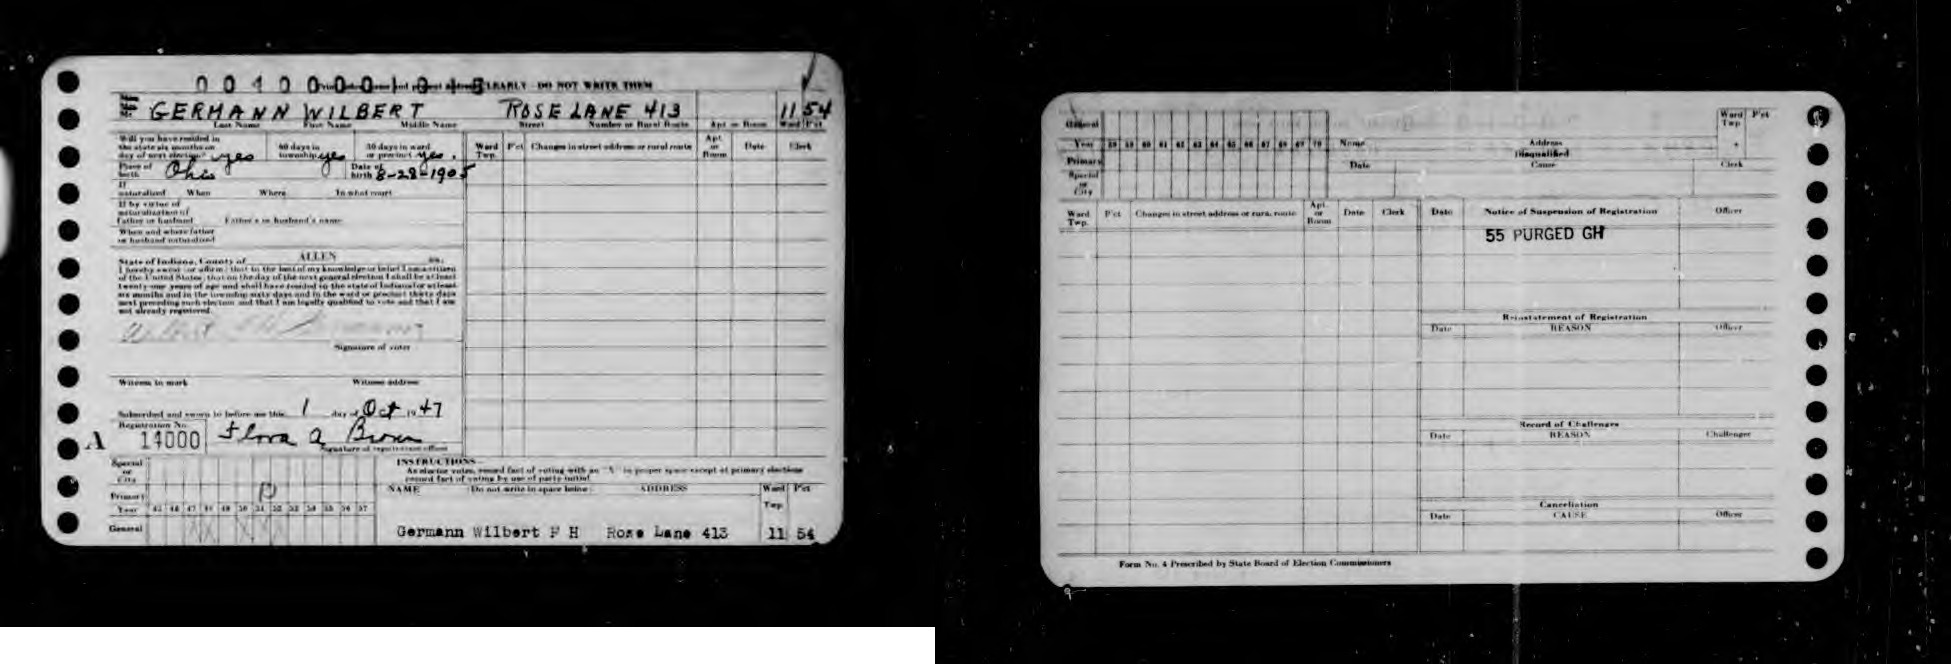 0 0 4 0 0 0 0 1 0 4
CLEARLY DO NOT WRITE THEM
GERMANN WILBERT ROSE LANE 413 11 54
Last Name First Name Middle Name Street Number or Rural Route Apt or Room Ward Pct
Will you have resided in
the state six months on
day of next election? yes 60 days in township yes 30 days in ward or precinct yes.
Ward Twp. P'ct Changes in street address or rural route Apt. or Room Date Clerk
Place of birth Ohio Date of birth 8-28-1905
If naturalized When Where In what court
If by virtue of
naturalization of
Father or husband Father's or husband's name
When and where father
or husband naturalized
State of Indiana, County of ALLEN ss:
I hereby swear (or affirm) that to the best of my knowledge or belief I am a citizen
of the United States, that on the day of the next general election I shall be at least
twenty-one years of age and shall have resided in the state of Indiana for at least
six months and in the township sixty days and in the ward or precinct thirty days
next preceding such election and that I am legally qualified to vote and that I am
not already registered.
Signature of voter
Witness to mark Witness address
Subscribed and sworn to before me this 1 day of Oct 1947
Registration No.
A 14000 Flora A Brown
Signature of registration officer
Special or City
Primary P
Year 45 46 47 48 49 50 51 52 53 54 55 56 57
General X X X X
INSTRUCTIONS—
As elector votes, record fact of voting with an "X" in proper space except at primary elections
record fact of voting by use of party initial
NAME Do not write in space below ADDRESS Ward Twp P'ct
Germann Wilbert F H Rose Lane 413 11 54
General
Year 58 59 60 61 62 63 64 65 66 67 68 69 70 Name Address Ward Twp P'ct
Primary
Special or City
Disqualified
Date Cause Clerk
Ward Twp. P'ct Changes in street address or rural route Apt. or Room Date Clerk
Date Notice of Suspension of Registration Officer
55 PURGED GH
Reinstatement of Registration
Date REASON Officer
Record of Challenges
Date REASON Challenger
Cancellation
Date CAUSE Officer
Form No. 4 Prescribed by State Board of Election Commissioners